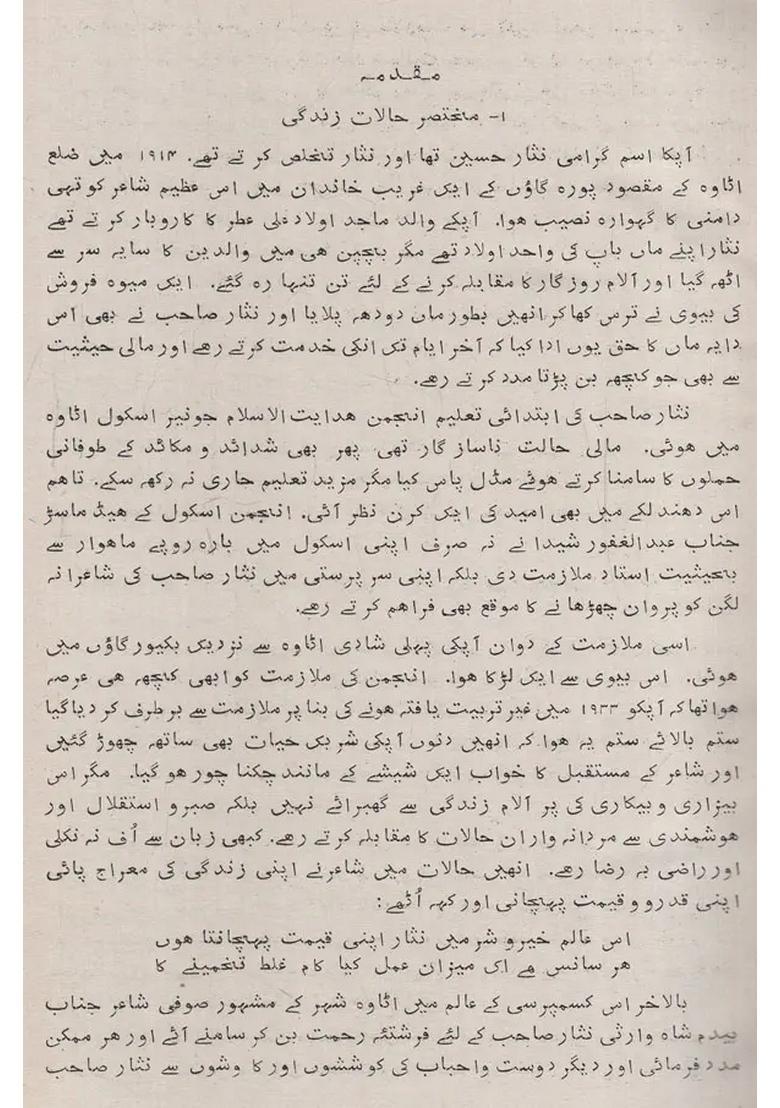 مقدمہ
۱- مختصر حالات زندگی
آپکا اسم گرامی نثار حسین تھا اور نثار تخلص کرتے تھے۔ ۱۹۱۴ میں ضلع
اٹاوہ کے مقصود پورہ گاؤں کے ایک غریب خاندان میں اس عظیم شاعر کو تہی
دامنی کا گہوارہ نصیب ہوا۔ آپکے والد ماجد اولاد علی عطر کا کاروبار کرتے تھے
نثار اپنے ماں باپ کی واحد اولاد تھے مگر بچپن ہی میں والدین کا سایہ سر سے
اٹھ گیا اور آلام روزگار کا مقابلہ کرنے کے لئے تن تنہا رہ گئے۔ ایک میوہ فروش
کی بیوی نے ترس کھا کر انھیں بطور ماں دودھ پلایا اور نثار صاحب نے بھی اس
دایہ ماں کا حق یوں ادا کیا کہ آخر ایام تک انکی خدمت کرتے رہے اور مالی حیثیت
سے بھی جو کچھ بن پڑتا مدد کرتے رہے۔
نثار صاحب کی ابتدائی تعلیم انجمن ہدایت الاسلام جونیر اسکول اٹاوہ
میں ہوئی۔ مالی حالت ناساز گار تھی پھر بھی شدائد و مکائد کے طوفانی
حملوں کا سامنا کرتے ہوئے مڈل پاس کیا مگر مزید تعلیم جاری نہ رکھ سکے۔ تاہم
اس دھندلکے میں بھی امید کی ایک کرن نظر آئی۔ انجمن اسکول کے ہیڈ ماسڑ
جناب عبدالغفور شیدا نے نہ صرف اپنی اسکول میں بارہ روپے ماہوار سے
بحیثیت استاد ملازمت دی بلکہ اپنی سر پرستی میں نثار صاحب کی شاعرانہ
لگن کو پروان چھڑھانے کا موقع بھی فراہم کرتے رہے۔
اسی ملازمت کے دوان آپکی پہلی شادی اٹاوہ سے نزدیک بکیور گاؤں میں
ہوئی۔ اس بیوی سے ایک لڑکا ہوا۔ انجمن کی ملازمت کو ابھی کچھ ہی عرصہ
ہوا تھا کہ آپکو ۱۹۳۳ میں غیر تربیت یافتہ ہونے کی بنا پر ملازمت سے بر طرف کر دیا گیا
ستم بالائے ستم یہ ہوا کہ انھیں دنوں آپکی شریک حیات بھی ساتھ چھوڑ گئیں
اور شاعر کے مستقبل کا خواب ایک شیشے کے مانند چکنا چور ہو گیا۔ مگر اس
بیزاری و بیکاری کی پر آلام زندگی سے گھبرائے نہیں بلکہ صبر و استقلال اور
ہوشمندی سے مردانہ وار ان حالات کا مقابلہ کرتے رہے۔ کبھی زبان سے اُف نہ نکلی
اور راضی بہ رضا رہے۔ انھیں حالات میں شاعر نے اپنی زندگی کی معراج پائی
اپنی قدر و و قیمت پہچانی اور کہہ اُٹھے:
اس عالم خیر و شر میں نثار اپنی قیمت پہچانتا ہوں
ہر سانس ہے اک میزان عمل کیا کام غلط تخمینے کا
بالاخر اس کسمپرسی کے عالم میں اٹاوہ شہر کے مشہور صوفی شاعر جناب
بیدم شاہ وارثی نثار صاحب کے لئے فرشتئہ رحمت بن کر سامنے آئے اور ہر ممکن
مدد فرمائی اور دیگر دوست و احباب کی کوششوں اور کاوشوں سے نثار صاحب